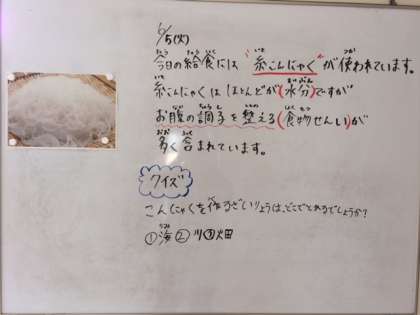 6/5(火)
今日の給食には"糸こんにゃく"が使われています。
糸こんにゃくはほとんどが(水分)ですが
お腹の調子を整える(食物せんい)が
多く含まれています。
クイズ
こんにゃくを作るざいりょうは、どこでとれるでしょうか?
①海②川③畑